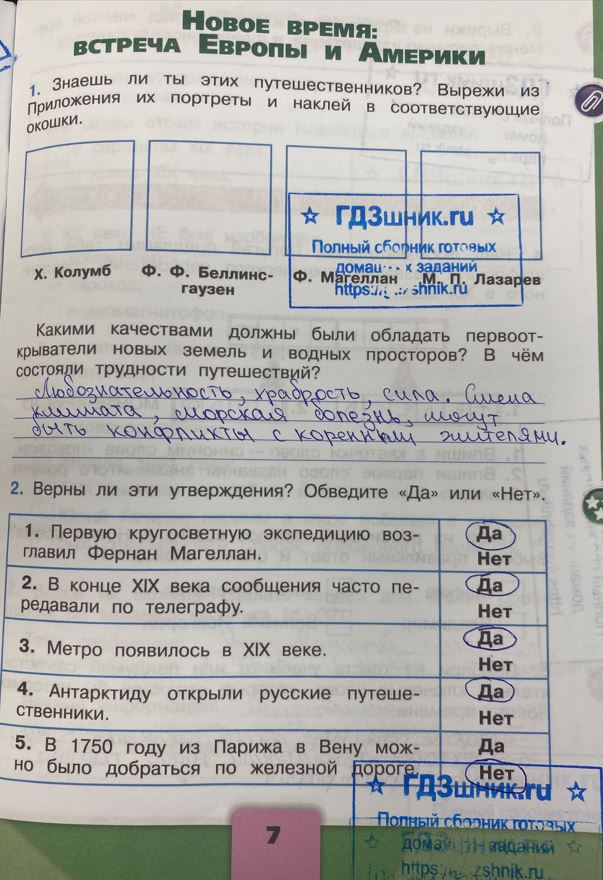 НОВОЕ ВРЕМЯ:
ВСТРЕЧА ЕВРОПЫ И АМЕРИКИ
1. Знаешь ли ты этих путешественников? Вырежи из
Приложения их портреты и наклей в соответствующие
окошки.
☆ ГДЗшник.ru ☆
Полный сборник готовых
заданий
Х. Колумб
Ф. Ф. Беллинс-
гаузен
Ф. Магеллан
М. П. Лазарев
Какими качествами должны были обладать первоот-
крыватели новых земель и водных просторов? В чём
состояли трудности путешествий?
Любознательность, храбрость, сила. Смена
климата морская болезнь, могут
быть конфликты с коренными жителями.
2. Верны ли эти утверждения? Обведите «Да» или «Нет».
1. Первую кругосветную экспедицию воз-
главил Фернан Магеллан.
Да
Нет
2. В конце XIX века сообщения часто пе-
редавали по телеграфу.
Да
Нет
3. Метро появилось в XIX веке.
Да
Нет
4. Антарктиду открыли русские путеше-
ственники.
Да
Нет
5. В 1750 году из Парижа в Вену мож-
но было добраться по железной дороге.
Да
Нет
☆ ГДЗшник.ru ☆
Полный сборник готовых
заданий
7